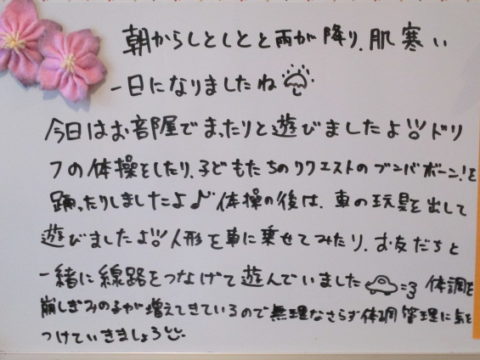 朝からしとしとと雨が降り、肌寒い
一日になりましたね
今日はお部屋でまったりと遊びましたよ!! ドリ
フの体操をしたり、子どもたちのリクエストのブンバボーン!を
踊ったりしましたよ♪ 体操の後は、車の玩具を出して
遊びましたよ!! 人形を車に乗せてみたり、お友だちと
一緒に線路をつなげて遊んでいました 体調を
崩しぎみの子が増えてきているので無理なさらず体調管理に気を
つけていきましょう